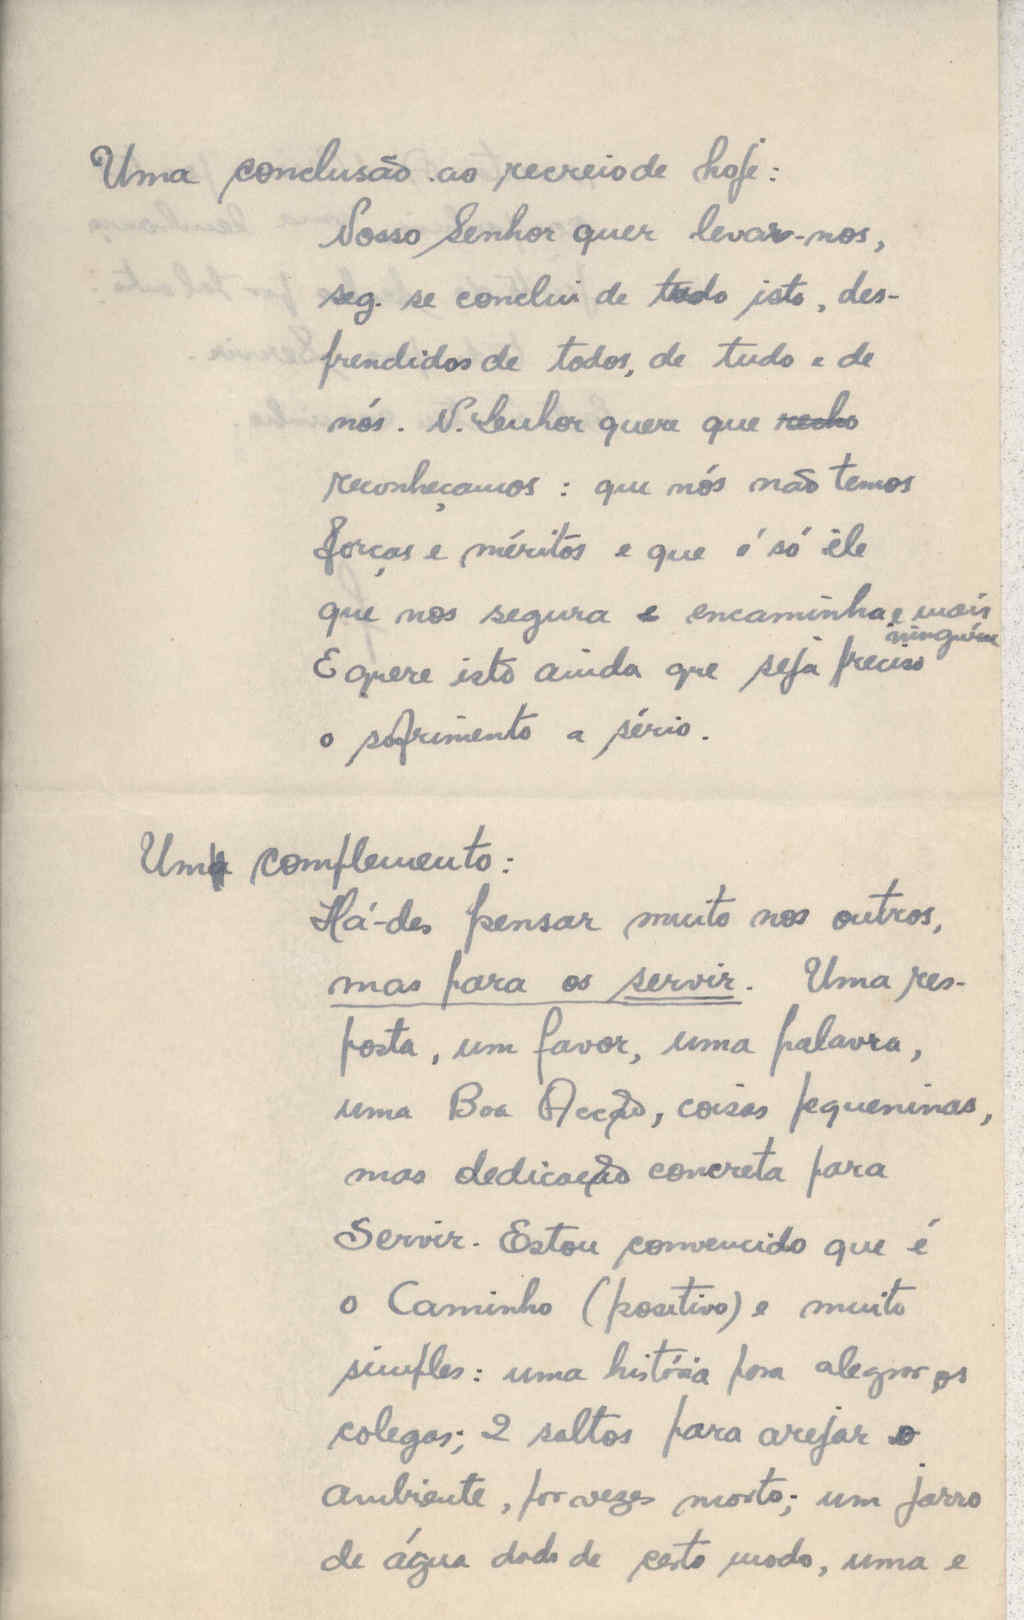 Uma conclusão ao recreio de hoje:
Nosso Senhor quer levar-nos,
seg. se conclui de tudo isto, des-
prendidos de todos, de tudo e de
nós. N. Senhor quere que recho
reconheçamos: que nós não temos
forças e méritos e que é só êle
que nos segura e encaminha e mais
ninguém
E quere isto ainda que seja preciso
o sofrimento a sério.
Um complemento:
Há-des pensar muito nos outros,
mas para os servir. Uma res-
posta, um favor, uma palavra,
uma Boa Acção, coisas pequeninas,
mas dedicação concreta para
Servir. Estou convencido que é
o Caminho (positivo) e muito
simples: uma história para alegrar os
colegas; 2 saltos para arejar o
ambiente, por vezes morto; um jarro
de água dado de certo modo, uma e